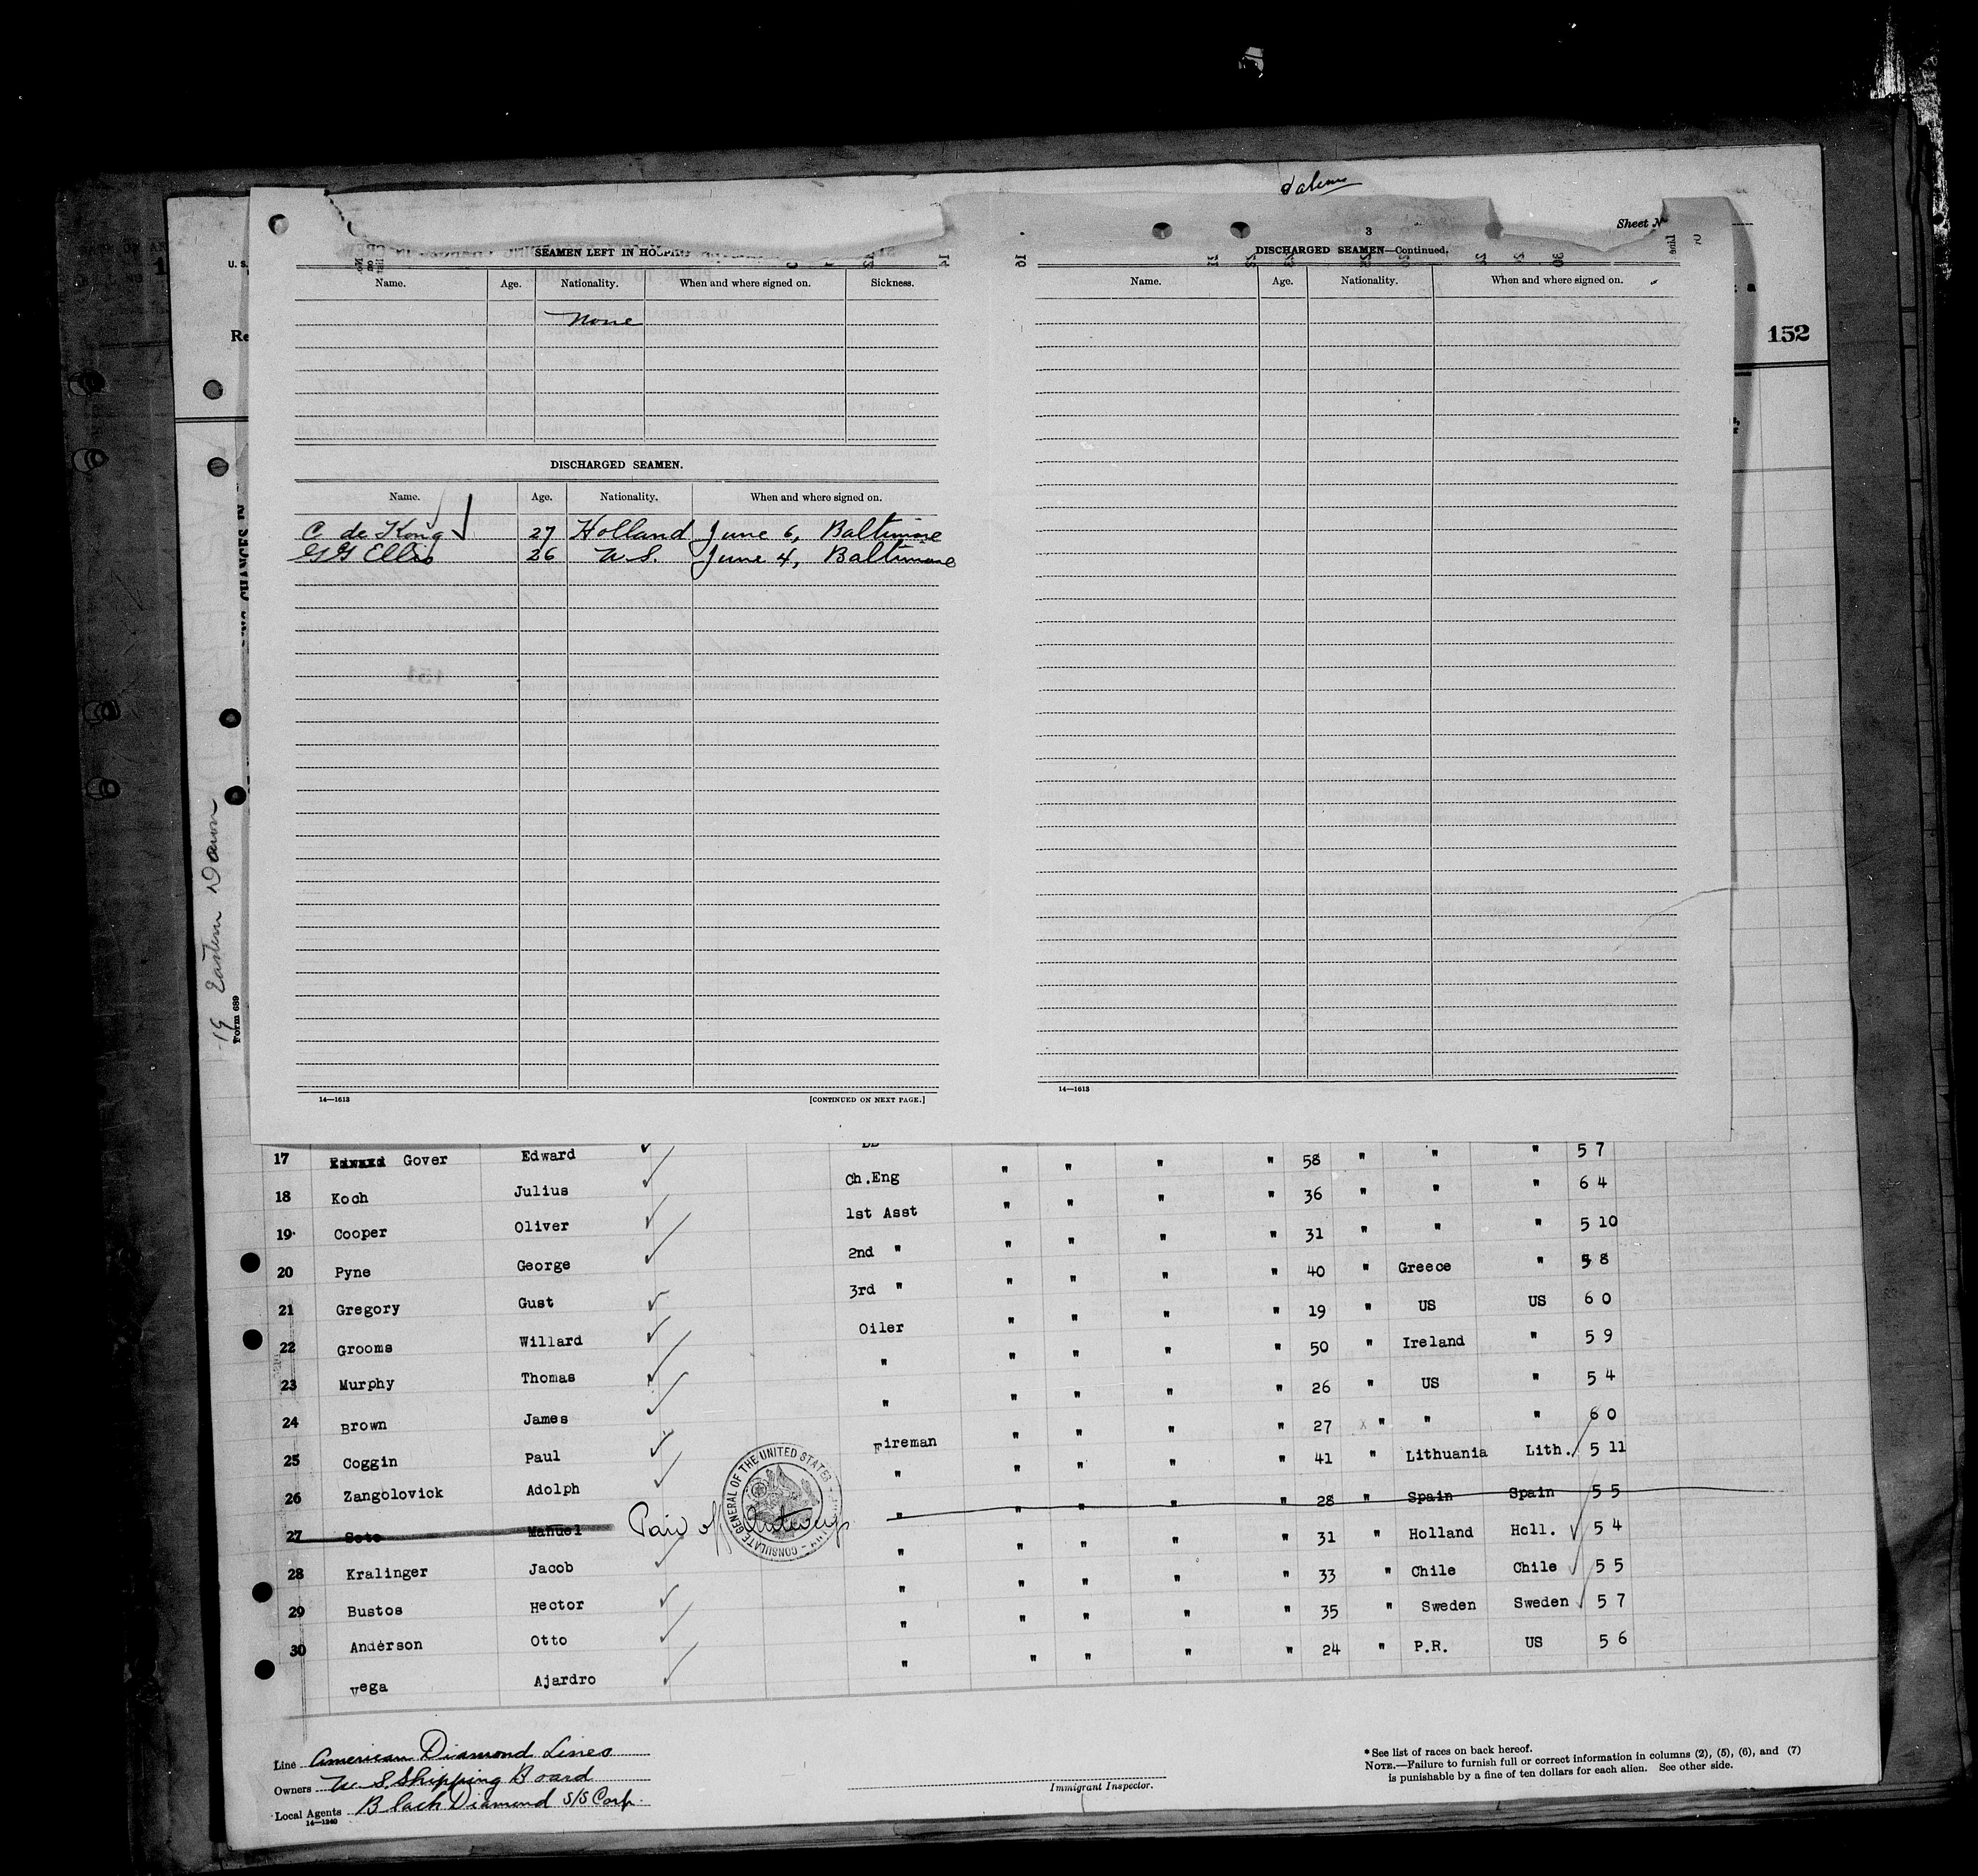 Sheet N
152
U. S.
Re
SEAMEN LEFT IN HOSPIT
Name. Age. Nationality. When and where signed on. Sickness.
None
DISCHARGED SEAMEN.
Name. Age. Nationality. When and where signed on.
C de Kong 27 Holland June 6, Baltimore
G G Ellis 26 U.S. June 4, Baltimore
14—1613 [CONTINUED ON NEXT PAGE.]
3
DISCHARGED SEAMEN—Continued.
Name. Age. Nationality. When and where signed on.
14—1613
Eastern Dawn
Form 689
17 Gover Edward " " " " 58 " " " 5 7
18 Koch Julius Ch.Eng " " " " 36 " " " 6 4
19 Cooper Oliver 1st Asst " " " " 31 " " " 5 10
20 Pyne George 2nd " " " " " 40 " Greece " 5 8
21 Gregory Gust 3rd " " " " " 19 " US US 6 0
22 Grooms Willard Oiler " " " " 50 " Ireland " 5 9
23 Murphy Thomas " " " " " 26 " US " 5 4
24 Brown James " " " " " 27 " " " 6 0
25 Coggin Paul Fireman " " " " 41 " Lithuania Lith. 5 11
26 Zangolovick Adolph " " " " " 28 " Spain Spain 5 5
27 Soto Manuel Paid off Antwerp " " " " " 31 " Holland Holl. 5 4
28 Kralinger Jacob " " " " " 33 " Chile Chile 5 5
29 Bustos Hector " " " " " 35 " Sweden Sweden 5 7
30 Anderson Otto " " " " " 24 " P.R. US 5 6
Vega Ajardro "
CONSULATE GENERAL OF THE UNITED STATES
Line American Diamond Lines
Owners U. S. Shipping Board
Local Agents Black Diamond S/S Corp.
14—1240
Immigrant Inspector.
* See list of races on back hereof.
NOTE.—Failure to furnish full or correct information in columns (2), (5), (6), and (7)
is punishable by a fine of ten dollars for each alien. See other side.